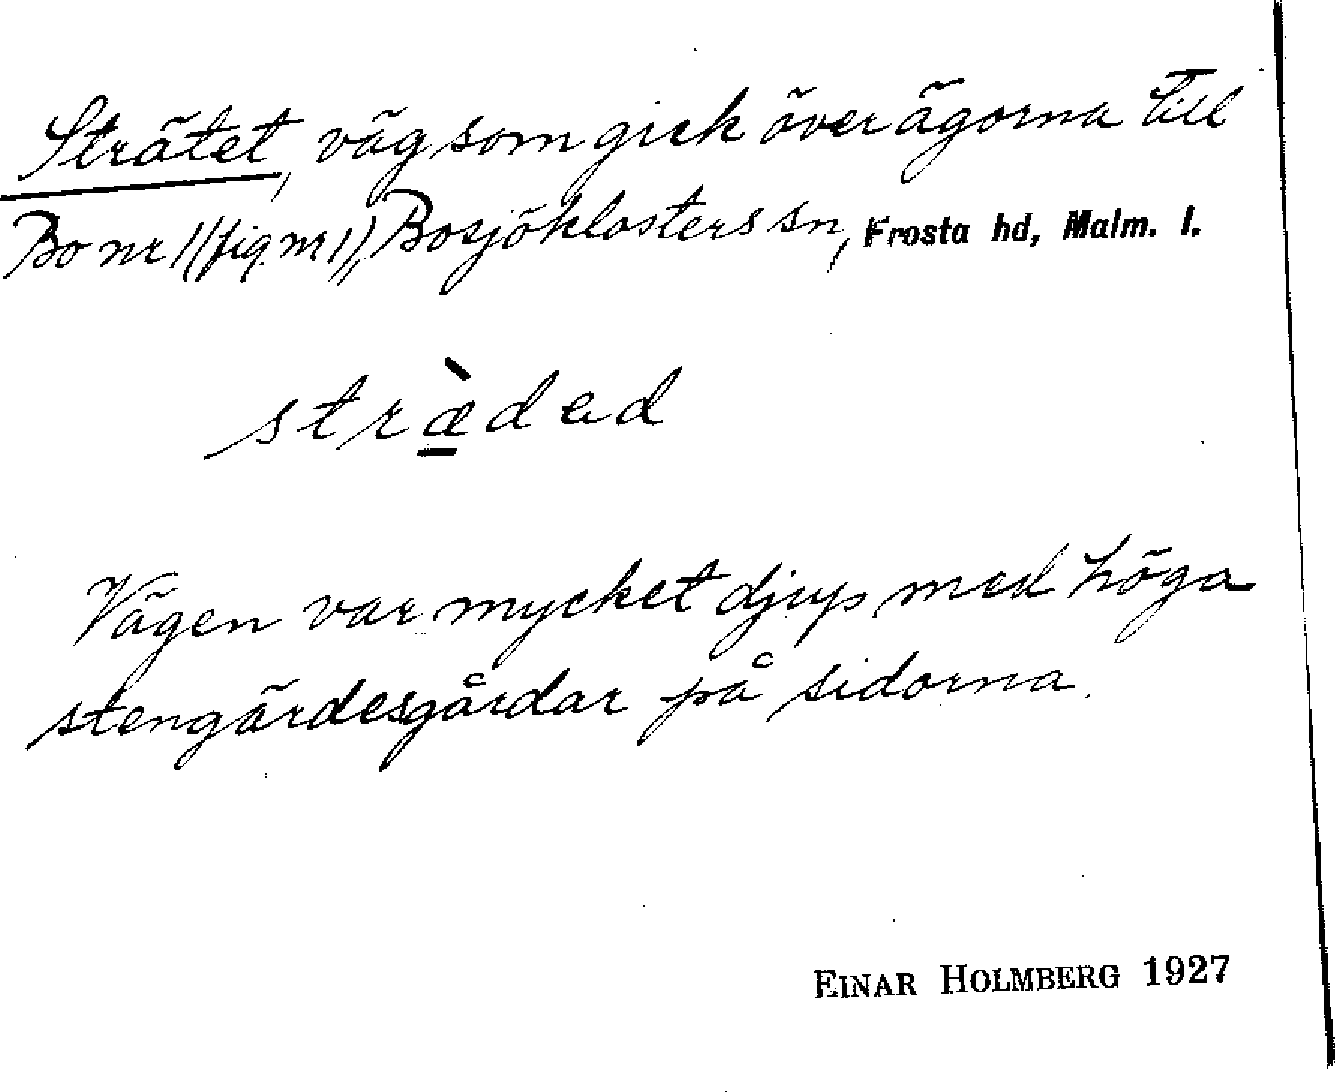 Strätet, väg som gick över ägorna till
Bo nr 1 (fig. nr 1), Bosjöklosters sn, Frosta hd, Malm. l.
stræ̀dad
Vägen var mycket djup med höga
stengärdesgårdar på sidorna.
EINAR HOLMBERG 1927